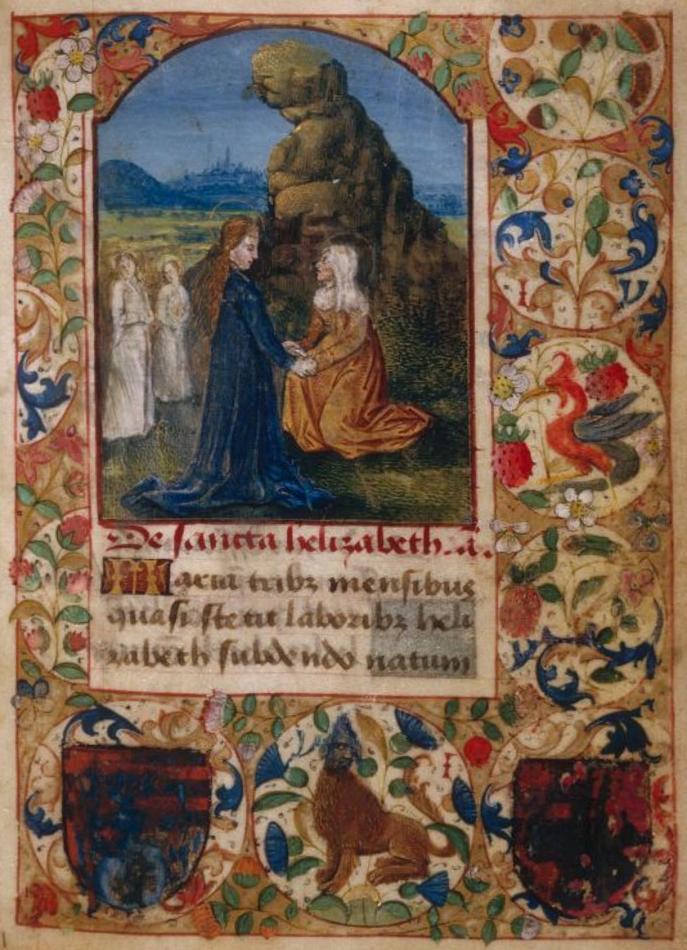 De sancta helizabeth. a.
Maria tribz mensibus
quasi stetit laboribz heli
zabeth subdendo natum
I V
I